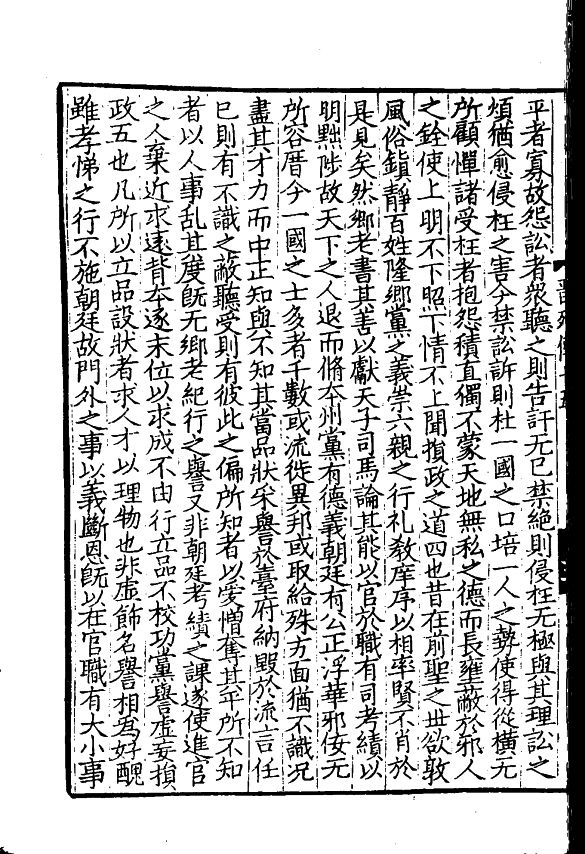 平者寡故怨訟者衆聽之則告訐无已禁絶則侵枉无極與其理訟之
煩猶愈侵枉之害今禁訟訴則杜一國之口培一人之勢使得從橫无
所顧憚諸受枉者抱怨積直獨不蒙天地無私之德而長壅蔽於邪人
之銓使上明不下照下情不上聞損政之道四也昔在前聖之世欲敦
風俗鎮靜百姓隆鄉黨之義崇六親之行礼教庠序以相率賢不肖於
是見矣然鄉老書其善以獻天子司馬論其能以官於職有司考績以
明黜陟故天下之人退而脩夲州黨有德義朝廷有公正浮華邪佞无
所容厝今一國之士多者千數或流徙異邦或取給殊方面猶不識况
盡其才力而中正知與不知其當品狀采譽於臺府納毀於流言任
已則有不識之蔽聽受則有彼此之偏所知者以愛憎奪其平所不知
者以人事乱其度旣无鄉老紀行之譽又非朝廷考績之課遂使進官
之人棄近求遠背夲逐末位以求成不由行立品不校功黨譽虛妄損
政五也凡所以立品設狀者求人才以理物也非虛飾名譽相爲好醜
雖孝悌之行不施朝廷故門外之事以義斷恩旣以在官職有大小事